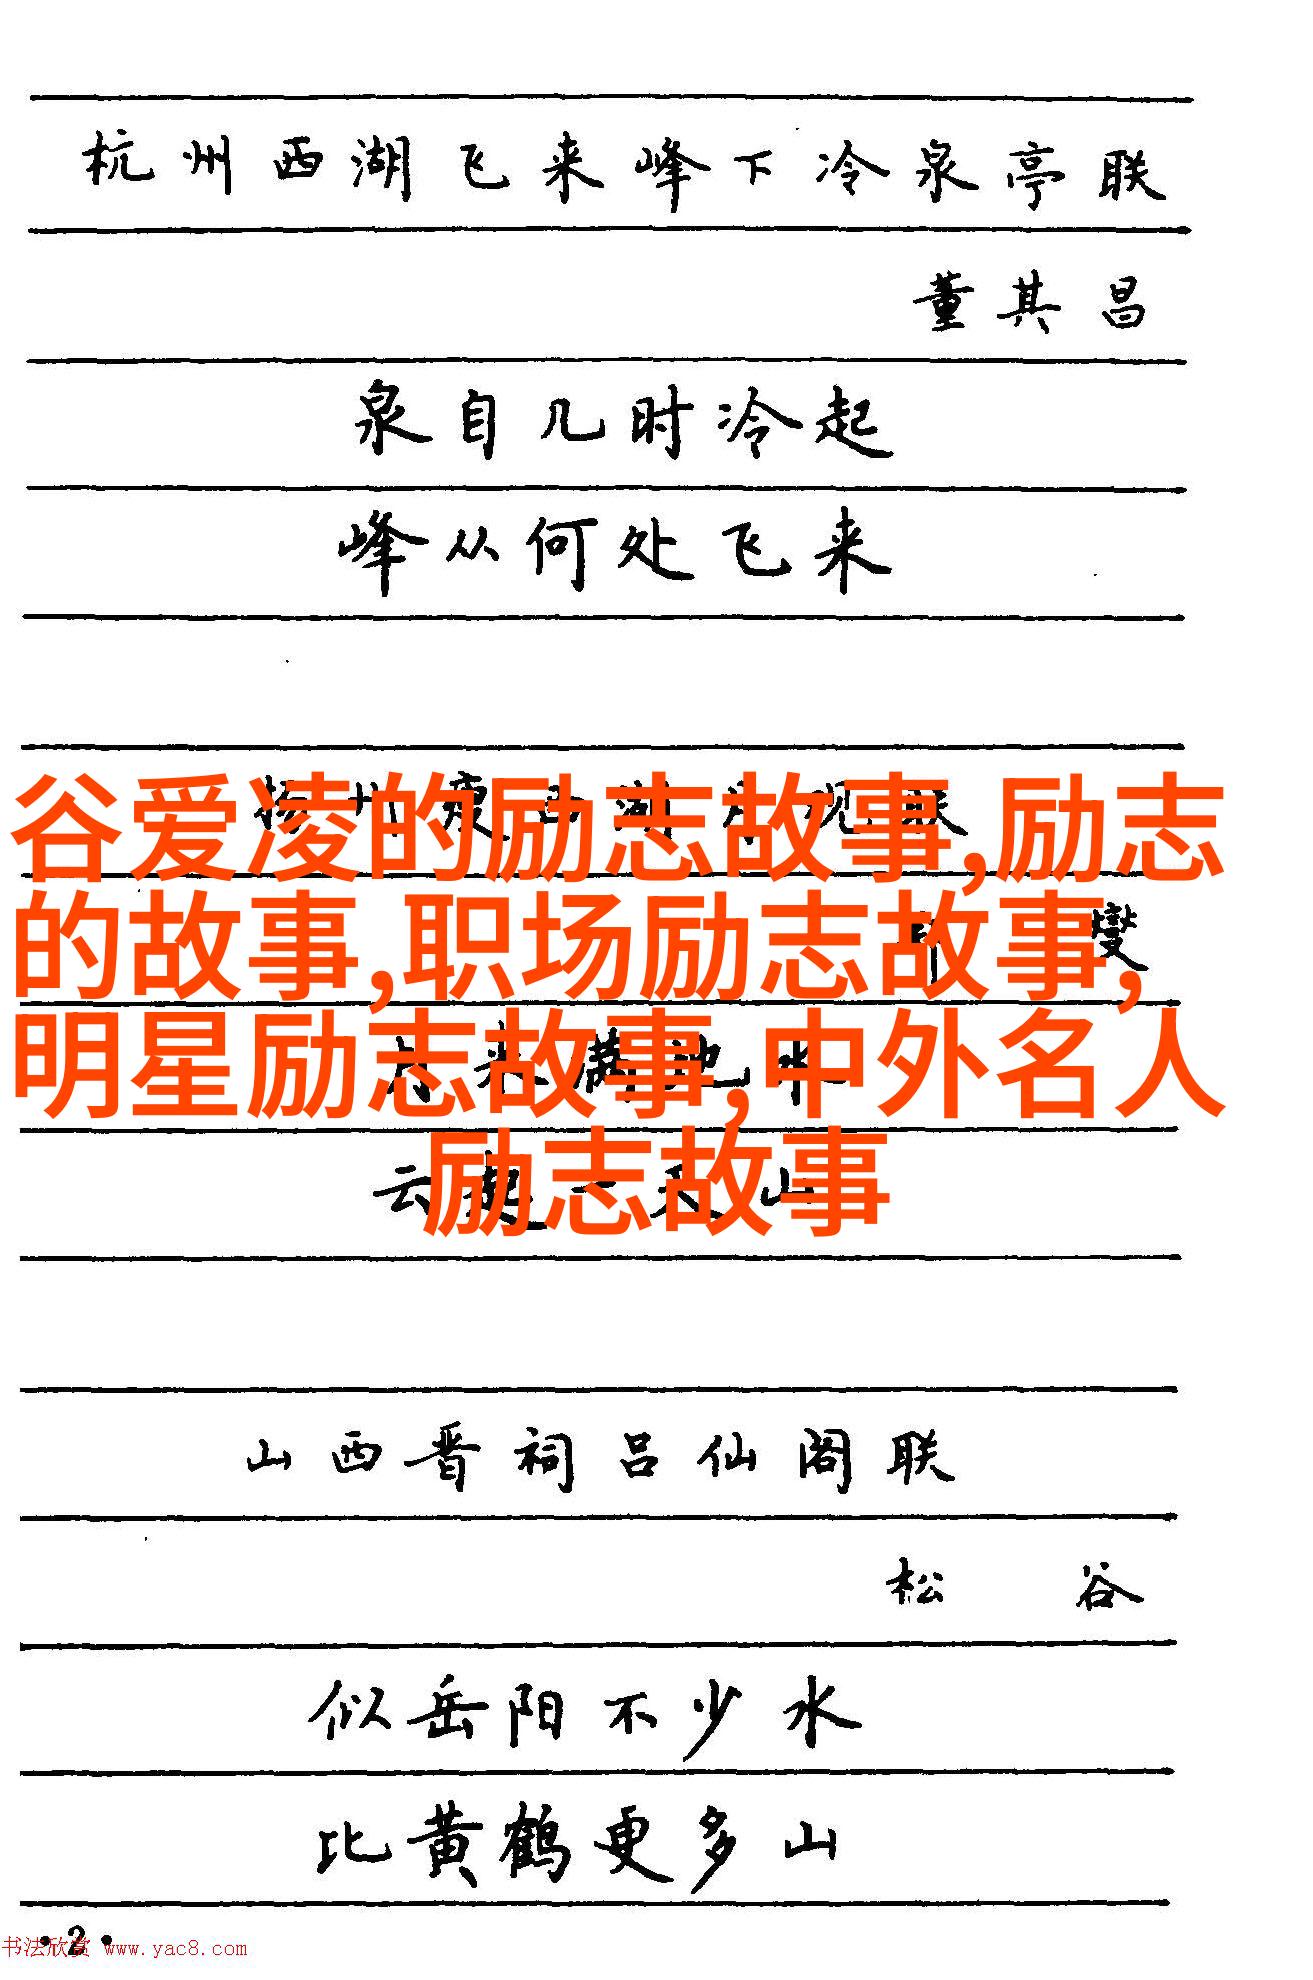 杭州西湖飞来峰下冷泉亭联
董其昌
泉自几时冷起
峰从何处飞来
谷爱凌的励志故事,励志
的故事,职场励志故事,
燮
明星励志故事,中外名人
励志故事
云
山西晋祠吕仙阁联
松谷
似岳阳不少水
比黄鹤更多山
·2·
书法欣赏 www.yac8.com